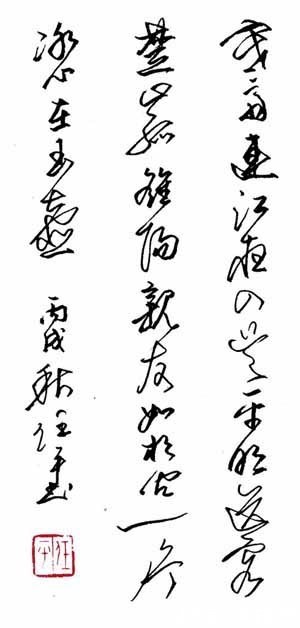 寒雨連江夜入吴平明送客
楚山孤雒陽親友如相問一片
冰心在玉壺 丙戌秋任平書
任平